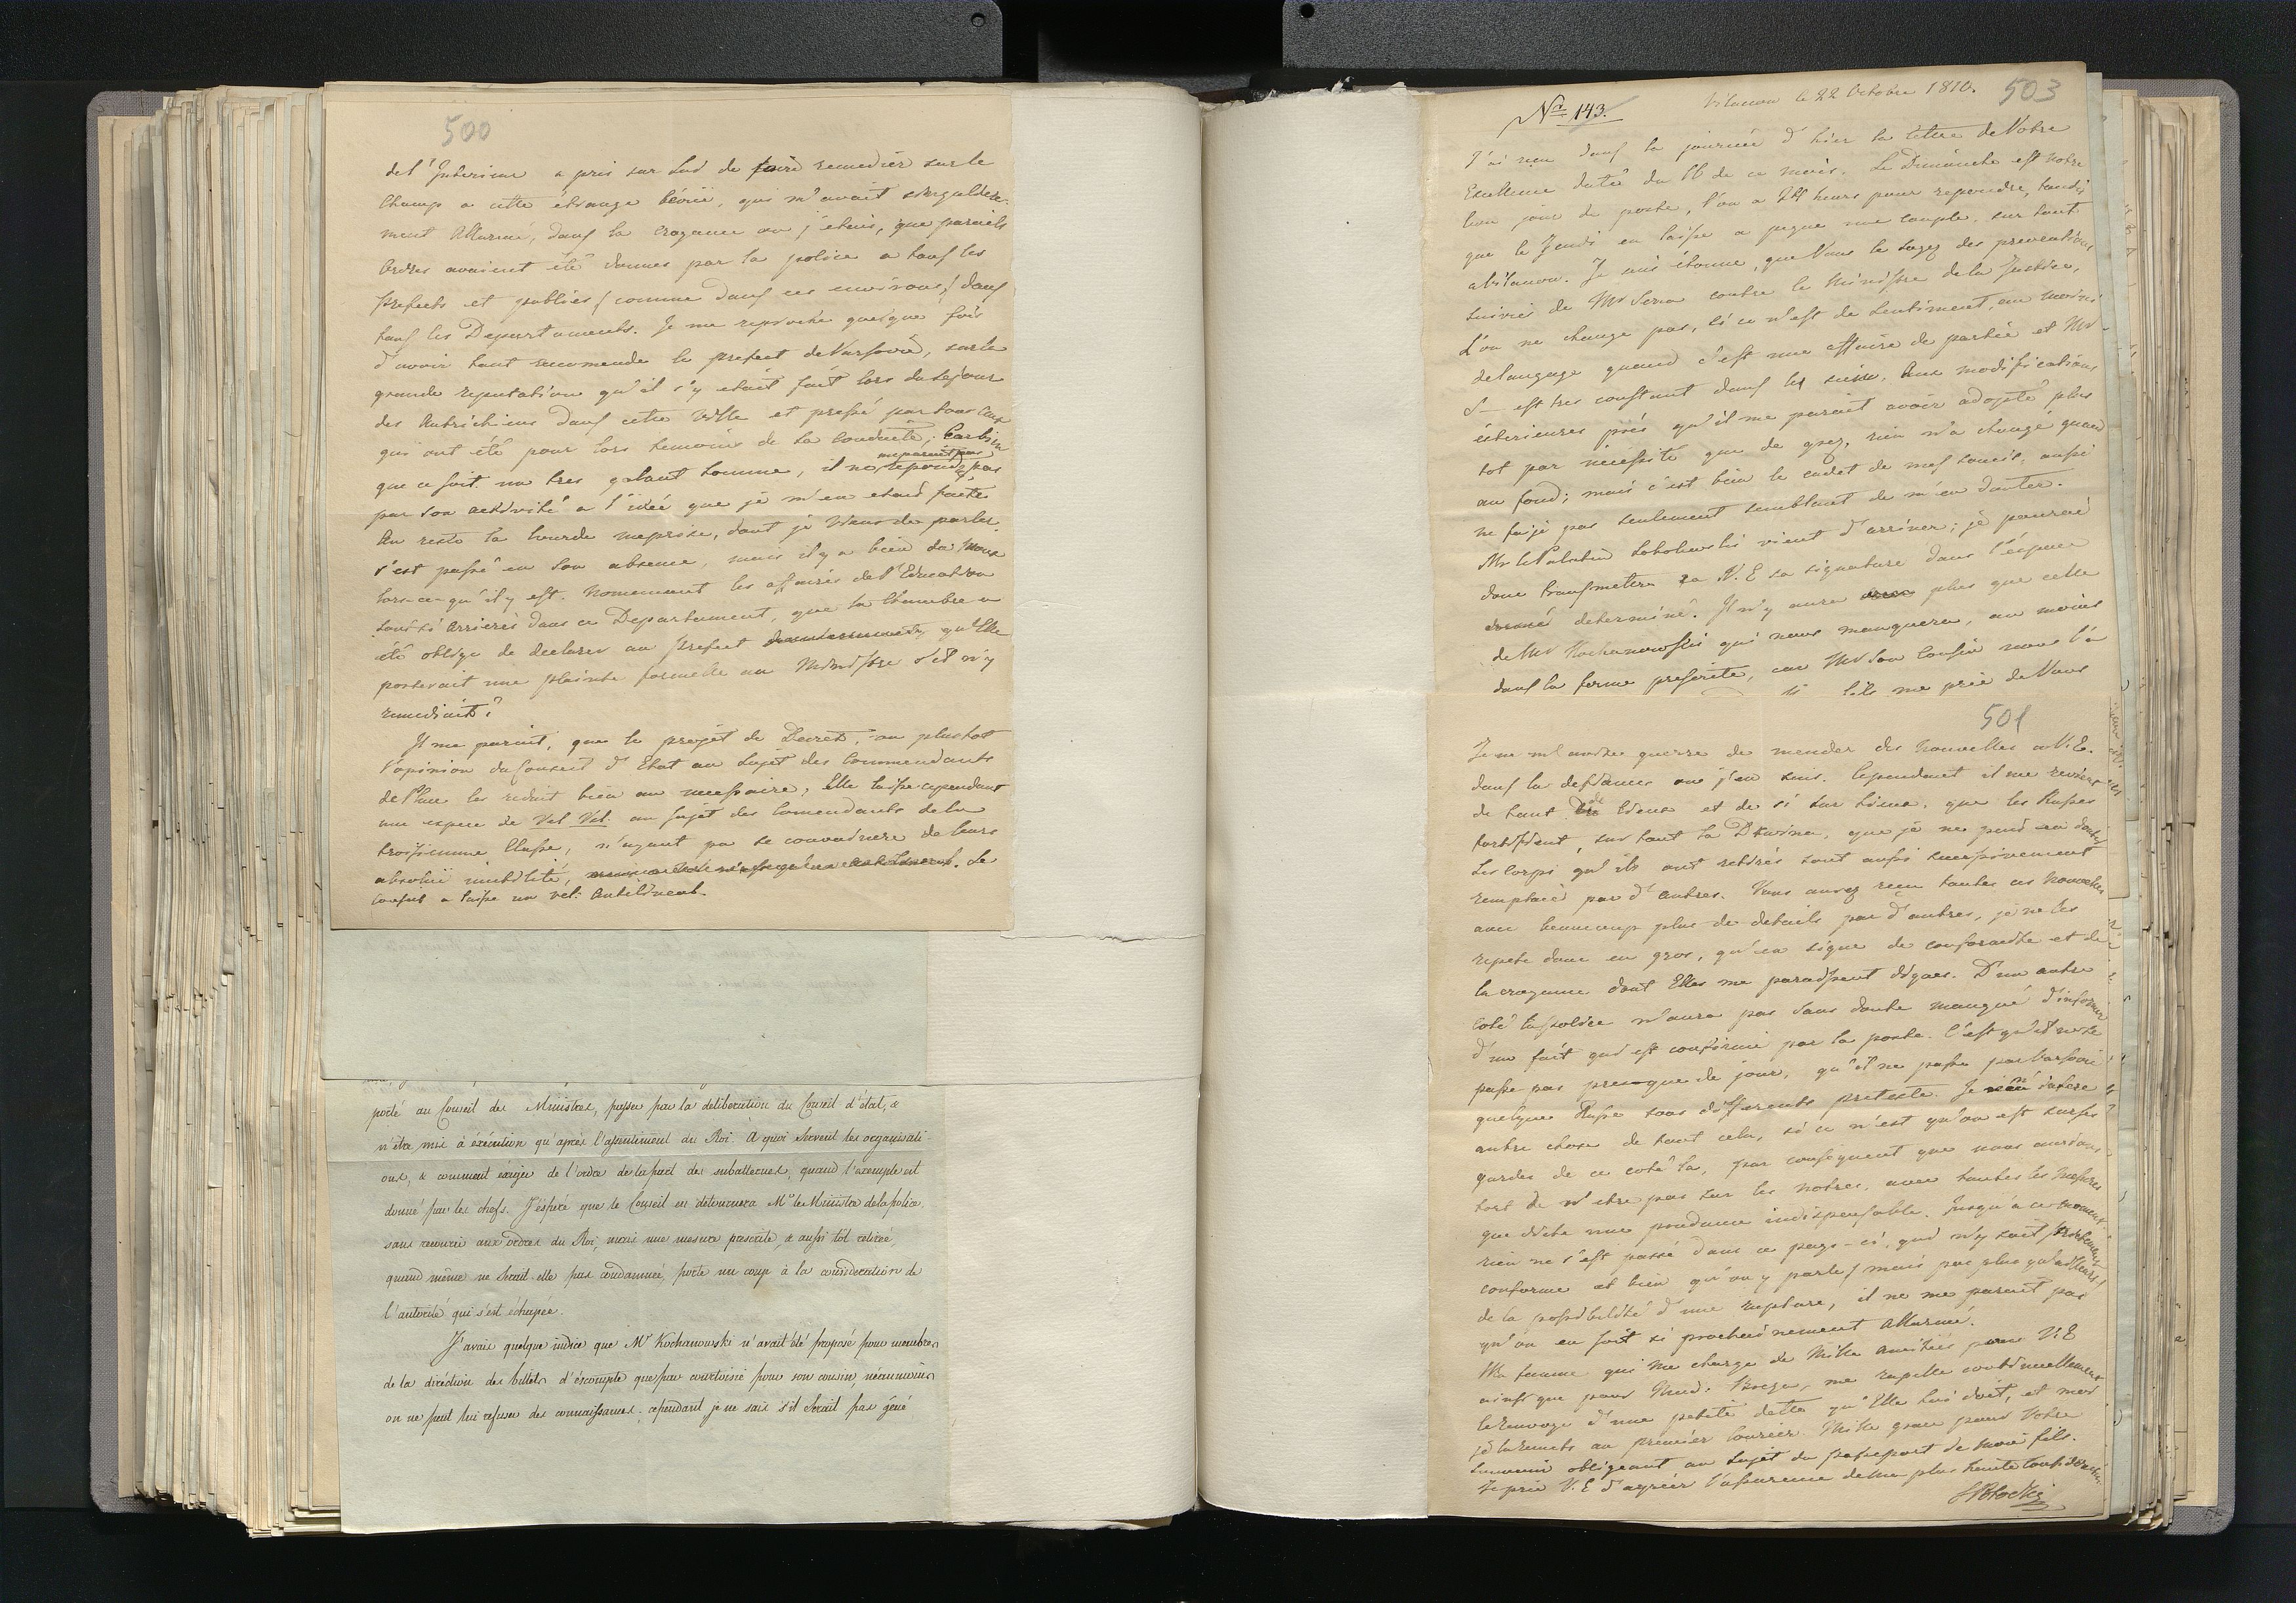 500
de l'Interieur a pris sur lui de faire remedier sur le
champ a cette étrange bévüe, qui m'avait singuliere-
ment allarmé, dans la croyance ou j'étois, que pareils
ordres avaient été donnés par la police a tous les
prefects et publiés (comme dans ces environs) dans
tous les Departaments. Je me reproche quelque fois
d'avoir tant recomendé le prefect de Varsovie, sur la
grande reputation qu'il s'y etait fait lors du sejour
des Autrichiens dans cette ville et pressé par tous ceux
qui ont été pour lors temoins de sa conduite; Car bien
me parait pas
que ce soit un tres galant homme, il ne repond pas
par son activité a l'idée que je m'en etais faite
Au reste la lourde meprise, dont je viens de parler
s'est passé en son absence, mais il y a bien du
lors-ce-qu'il y est. Nomement les affaires de l'Education
sont si arrierés dans ce Departement, que la Chambre a
été obligé de declarer au Prefect qu'Elle
porterait une plainte formelle au Ministre s'il n'y
remediait?
Il me parait, que le projét de Decret, ou plustot
l'opinion du Conseil d'Etat au sujét des Commendants
de Place les reduit bien au necessaire; Elle laisse cependant
une espece de Vel Vel. au sujét des Comendants de la
troisiemme Classe, n'ayant pu se convaincre de leurs
absolüe inutilité, Le
Conseil a laissé un vel: Antilineal.
porté au Conseil des Ministres, passer par la déliberation du Conseil d'état, &
n'être mis à éxécution qu'après l'assentiment du Roi. A quoi servent les organisati-
ons, & comment éxiger de l'ordre de la part des subalternes, quand l'exemple est
donné par les chefs. J'éspére que le Conseil en détournera Mr le Ministre de la police,
sans recourir aux ordres du Roi, mais une mesure prescrite, & aussi tôt retirée,
quand même ne serait-elle pas condamnée, porte un coup à la considération de
l'autorité qui s'est échapée.
J'avais quelque indice que Mr Kochanowski n'avait été proposé pour membre
de la diréction des billets d'éscompte que par courtoisie pour son cousin, néanmoins
on ne peut lui refuser des connaissances; cependant je ne sais s'il serait pas gêné
503
No 143. Vilanow le 22 Octobre 1810.
J'ai reçu dans la journée d'hier la lettre de Votre
Excellence datée du 16 de ce mois. Le Dimanche est notre
bon jour de poste, l'on a 24 heures pour repondre, tandis
que le Jeudi en laisse a peine une couple, sur tout
a Vilanow. Je suis étonné, que Vous le soyez des preventions
suivies de Mr Serra contre le Ministre de la Justice,
L'on ne change pas, si ce n'est de sentiment, au moins
de langage quand c'est une affaire de partie et Mr
S— est tres constant dans les siens. Aux modifications
exterieures près qu'il me parait avoir adopté plus
tot par necessité que de gré, rien n'a changé quand
au fond; mais c'est bien le cadet de mes soucis, aussi
ne fais-je pas seulement semblant de m'en douter.
Mr le Palatin Sobolewski vient d'arriver; je pourrai
donc transmettre a V. E sa signature dans l'espace
determiné. Il n'y aura plus que celle
de Mr Kochanowski qui nous manquera, au moins
dans la forme prescrite, car Mr son Cousin nous l'a
fils me prie de Vous
501
Je ne m'avise guerre de mender des nouvelles a V. E.
dans la defiance ou j'en suis. Cependant il me revient
de tant de lieux et de si sur lieux, que les Russes
fortifient, sur tout la Dzwina, que je ne peux en douter
Les Corps qu'ils ont retirés sont aussi successivement
remplacés par d'autres. Vous aurez reçu toutes ces nouvelles
avec beaucoup plus de details par d'autres, je ne les
repete donc en gros, qu'en signe de conformité et de
la croyance dont Elles me paraissent dignes. D'un autre
coté la police n'aura pas sans doute manqué d'informer
d'un fait qui est confirmé par la poste. C'est qu'il ne se
passe pas presque de jour, qu'il ne passe par Varsovie
quelque Russe sous differents pretexte. Je n'en infere
autre chose de tout cela, si ce n'est qu'on est sur ses
gardes de ce coté la, par consequent que nous aurions
tort de n'etre pas sur les notres, avec toutes les mesures
que dicte une prudence indispensable. Jusqu'a ce moment
rien ne s'est passé dans ce pays-ci, qui n'y soit
conforme et bien qu'on y parle (mais pas plus qu'ailleurs)
de la possibilité d'une rupture, il ne me parait pas
qu'on en soit si prochainement allarmé.
Ma femme qui me charge de Mille amitiés pour V: E
ainsi que pour Mad. Breza, me rapelle continuellement
le renvoye d'une petite dette qu'Elle lui doit, et moi
je la remets au premier Courrier. Mille grace pour Votre
souvenir obligeant au sujet du passeport de mon fils.
Je prie V. E d'agréer l'assurance de ma plus haute Consideration
SPotocki